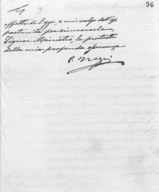 96
effetto di legge, e mi valgo dell'op
portunità per rinnovarle,
Signor Ministro, la protesta
della mia profonda osservanza